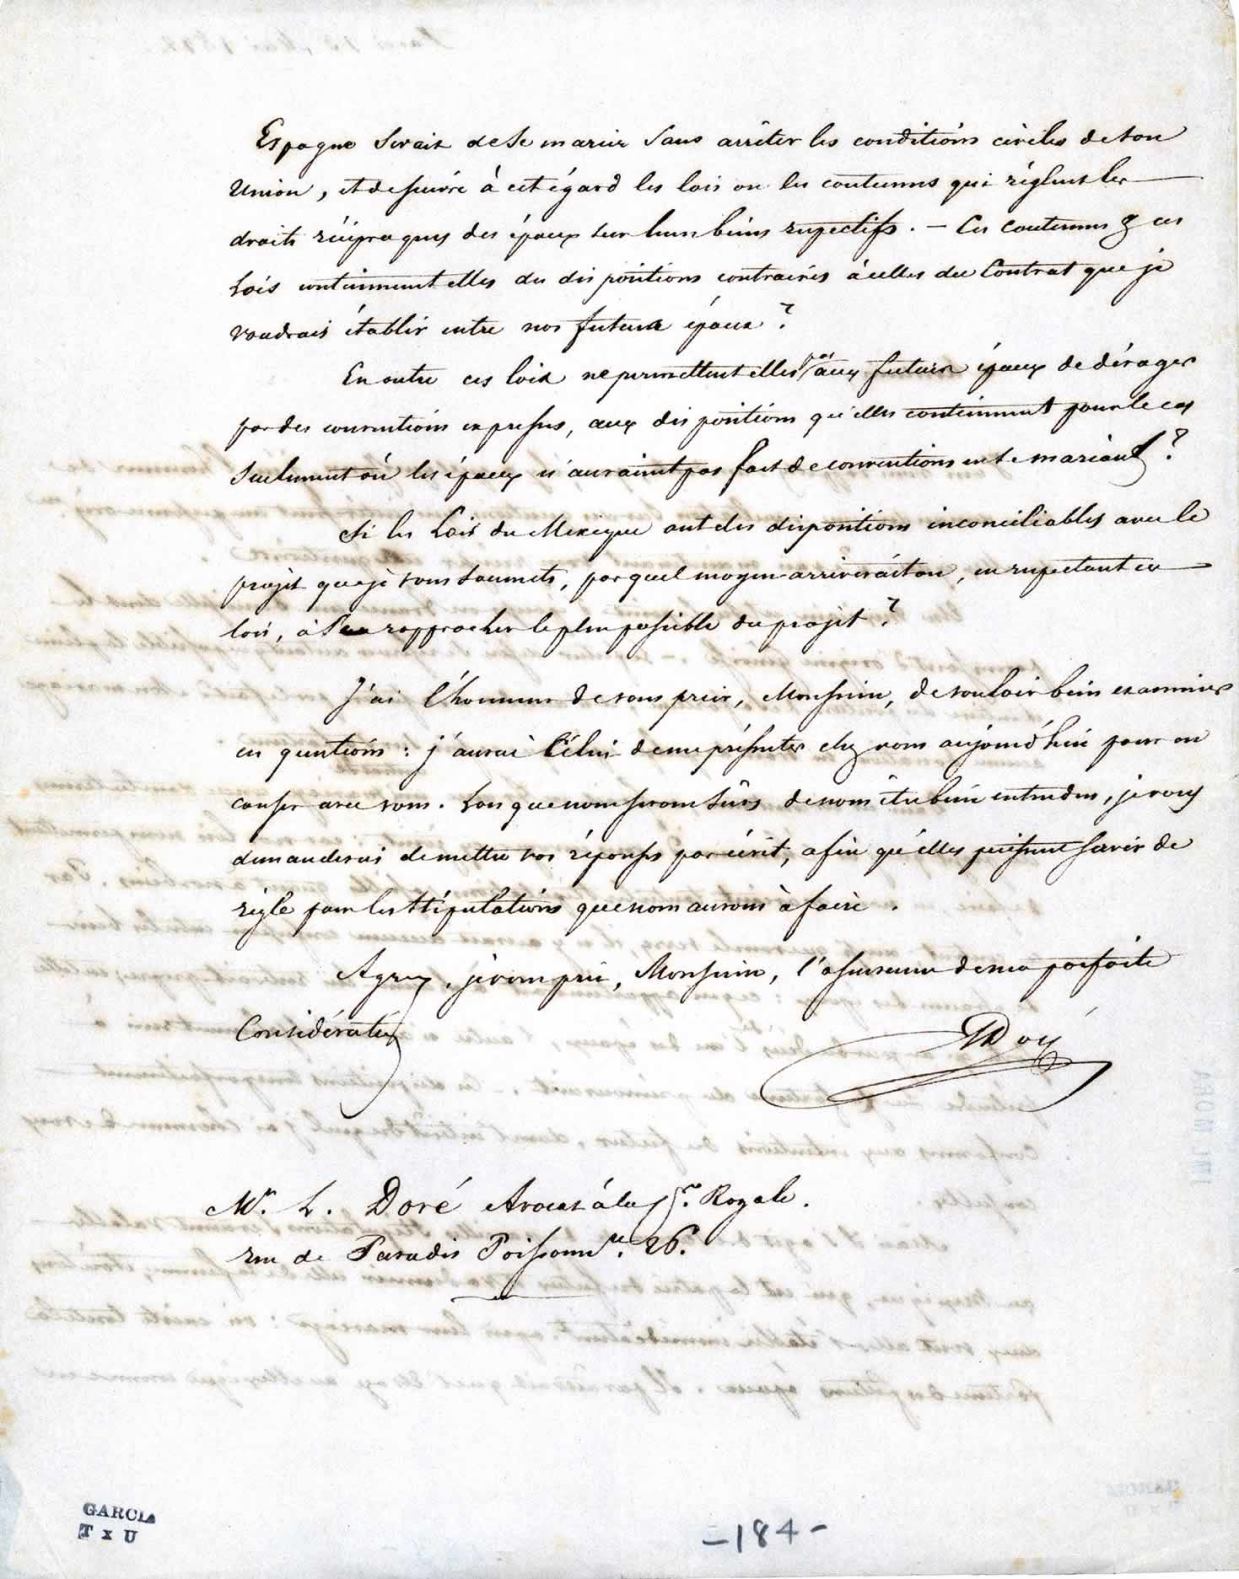 Espagne serait de se marier sans arrêter les conditions civiles de son
Union, et de suivre à cet égard les lois ou les coutumes qui règlent les
droits réciproques des époux sur leurs biens respectifs. — Ces coutumes & ces
Lois contiennent elles des dispositions contraires à celles du Contrat que je
voudrais établir entre nos futurs époux ?
En outre ces lois ne permettent elles pas aux futurs époux de déroger
par des conventions expresses, aux dispositions qu'elles contiennent pour le cas
seulement où les époux n'auraient pas fait de conventions en se mariant ?
Si les Lois du Mexique ont des dispositions inconciliables avec le
projet que je vous soumets, par quel moyen arriverait on, en respectant ces
lois, à se rapprocher le plus possible du projet ?
J'ai l'honneur de vous prier, Monsieur, de vouloir bien examiner
ces questions : j'aurai celui de me présenter chez vous aujourd'hui pour en
causer avec vous. Lorsque nous serons sûrs de nous être bien entendus, je vous
demanderai de mettre vos réponses par écrit, afin qu'elles puissent servir de
règle pour les stipulations que nous aurons à faire.
Agréez, je vous prie, Monsieur, l'assurance de ma parfaite
Considération
Doré
Mr. L. Doré Avocat à la Royale.
rue de Paradis Poissonre. 26.
GARCIA
T x U
-184-